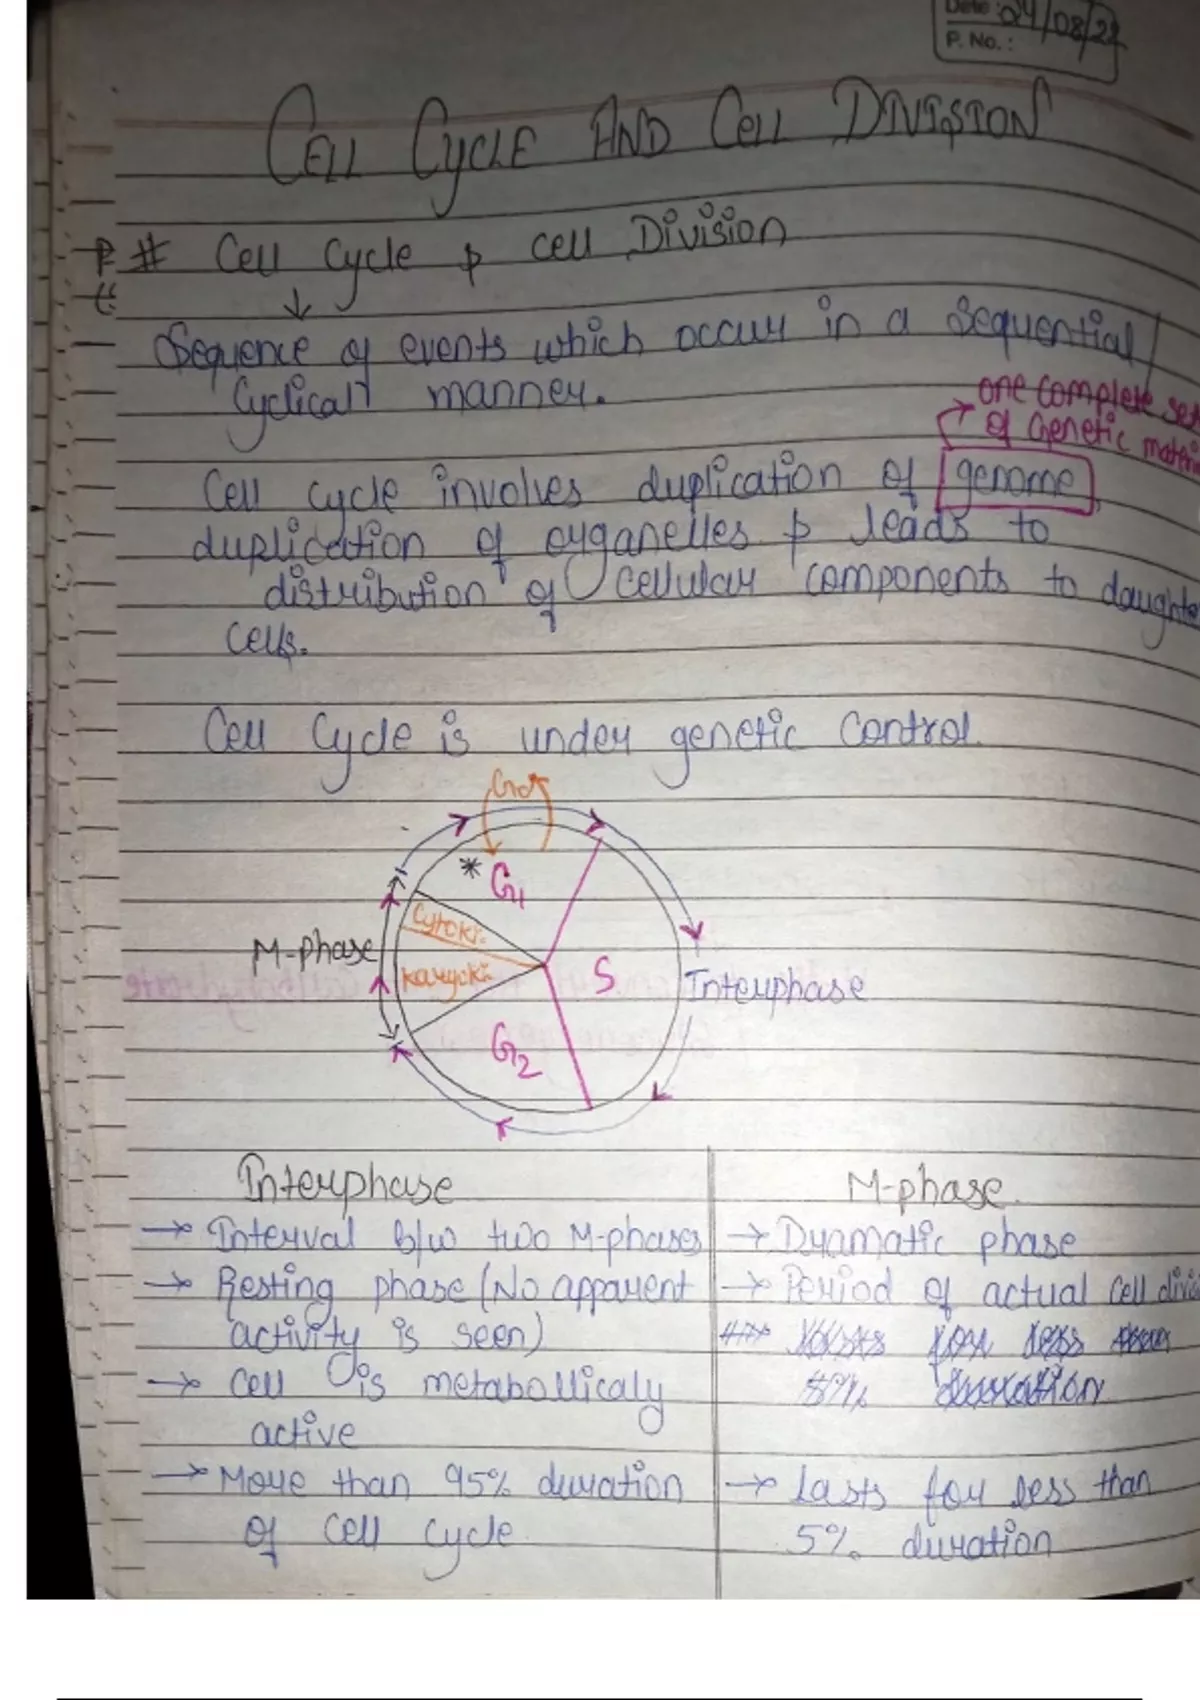 Date: 24/08/22
P. No.:
CELL CYCLE AND CELL DIVISION
# Cell Cycle & cell Division
↓
Sequence of events which occur in a sequential/
cyclical manner.
one complete set
of Genetic material
Cell cycle involves duplication of genome,
duplication of organelles & leads to
distribution of cellular components to daughte
cells.
Cell Cycle is under genetic control.
G0
* G1
Cytoki-
M-phase
karyoki-
S
Interphase
G2
Interphase
M-phase
→ Interval b/w two M-phases
→ Dyamatic phase
→ Resting phase (No apparent
→ Period of actual cell divi
activity is seen)
→ Cell is metabollicaly
active
→ More than 95% duration
→ Lasts for less than
of cell cycle
5% duration